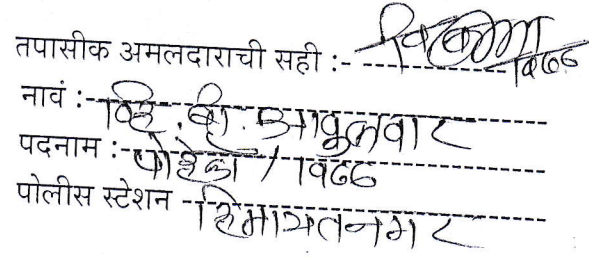 तपासीक अमलदाराची सही :-
नावं :- व्हि. बी. आवुलवार
पदनाम :- पोहेकॉ / १७६६
पोलीस स्टेशन - हिमायतनगर